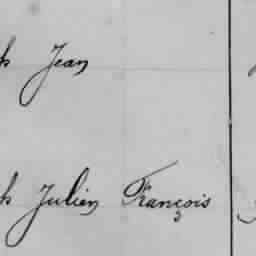 h Jean
h Julien François